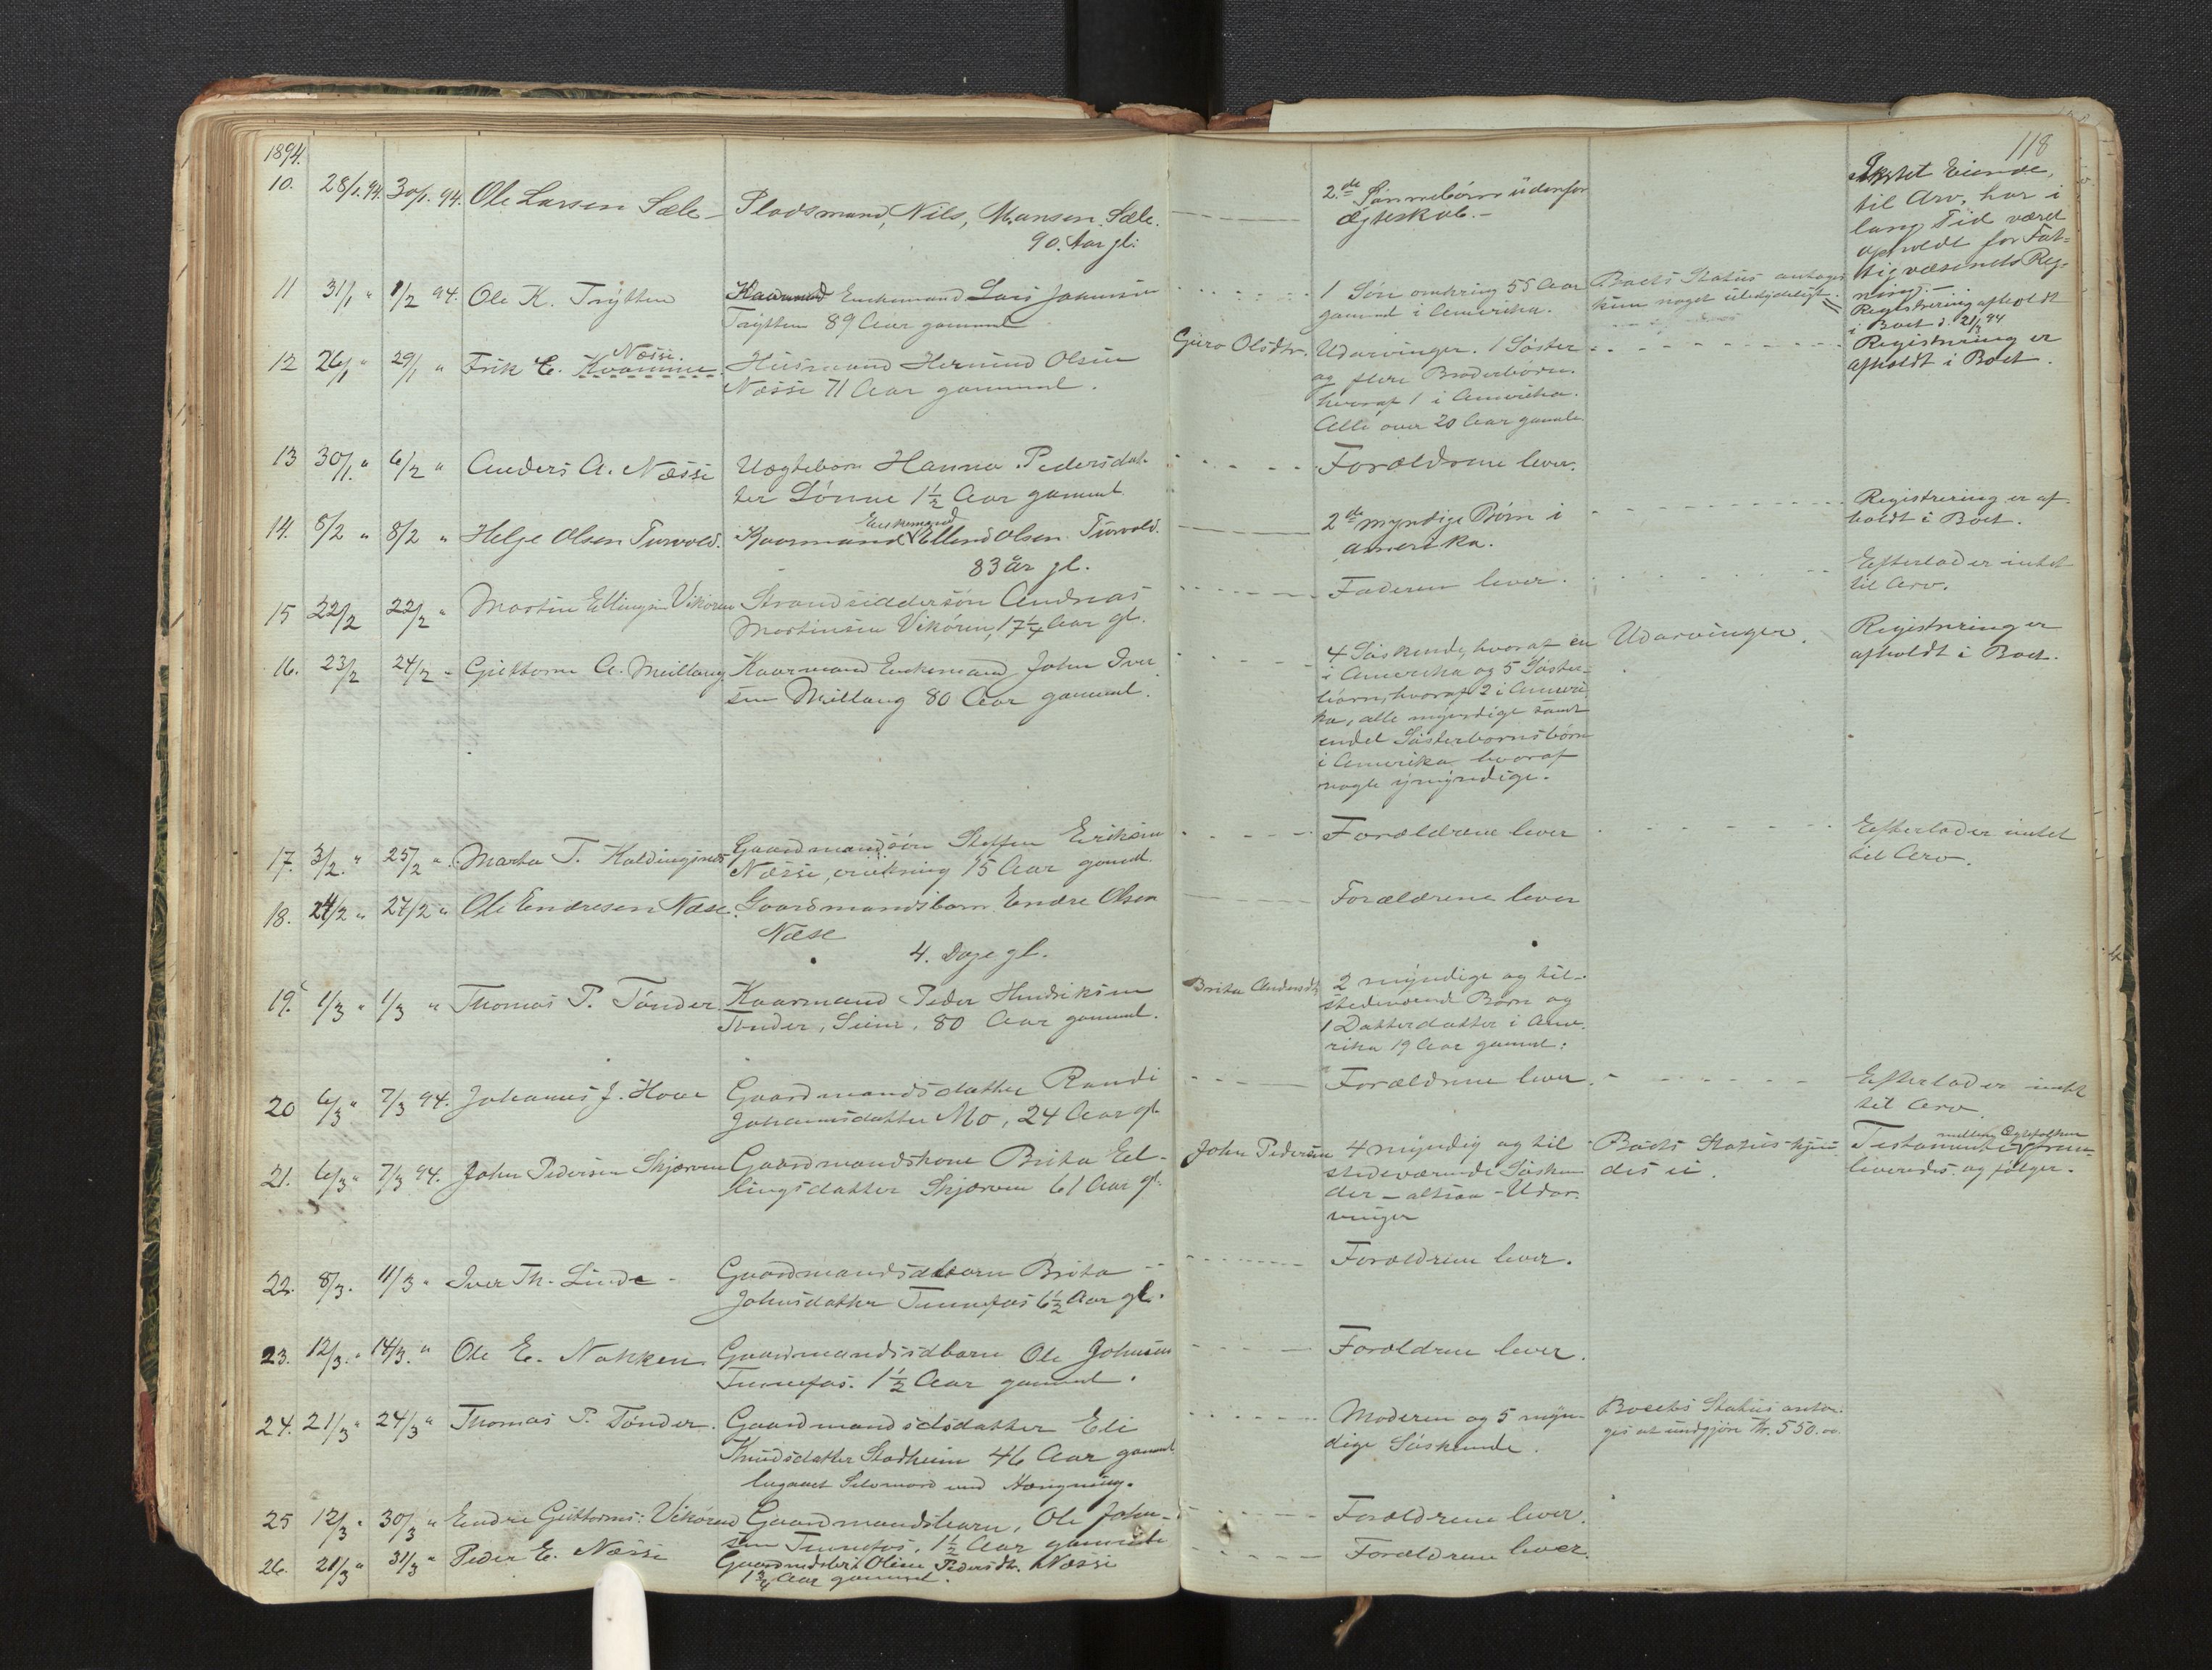 118
1894.
10. 28/1.94. 30/1.94. Ole Larsen Sæle - Pladsmand, Nils, Monsen Sæle.
90. Aar gl.
2de Sønnebørn udenfor
Ægteskab.-
Eiende,
til Arv, har i
lang Tid været
for Fat-
tigvæsenets Reg-
ning.-
11 31/1 " 1/2 94. Ole K. Trytten Kaarmand Enkemand Lars Johannesen
Trytten 89 Aar gammel
1 Søn omkring 55 Aar
gammel i Amerika.
Boets Status antages
kun noget ubetydeligt.
Registrering afholdt
i Boet d. 21/3 94
12 26/1 " 29/1 " Erik E. Kvamme. Næsse. Husmand Hermund Olsen
Næsse 71 Aar gammel.
Guro Olsdtr.
Udarvinger. 1 Søster
og flere Broderbørn.
hvoraf 1 i Amerika.
Alle over 20 Aar gamle
Registrering er
afholdt i Boet.
13 30/1 " 6/2 " Anders A. Næsse Uægtebarn Hanna Pedersdat-
ter Lønne 1½ Aar gammel.
Forældrene lever.
14. 5/2 " 8/2 " Helge Olsen Turvold. Kaarmand Enkemand Ellend Olsen Turvold.
83 år gl.
2de myndige Børn i
Amerika.
Registrering er af-
holdt i Boet.
15 22/2 22/2 " Martin Ellingsen Vikøren Strandsiddersøn Andreas
Martinsen Vikøren, 17¼ Aar gl.
Faderen lever.
Efterlader intet
til Arv.
16. 23/2 24/2 - Guttorm A. Meillang Kaarmand Enkemand John Iver
sen Meillang 80 Aar gammel.
4 Søskende, hvoraf en
i Amerika og 5 Søster-
børn, hvoraf 2 i Ameri
ka, alle myndige samt
endel Søsterbørnsbørn
i Amerika hvoraf
nogle umyndige.
Udarvinger.
Registrering er
afholdt i Boet.
17. 3/2. " 25/2 " Marta T. Gaardmandssøn Steffen Eriksen
Næsse, omkring 15 Aar gammel.
Forældrene lever
Efterlader intet
til Arv.
18. 24/2 " 27/2 " Ole Endresen Næse. Gaardmandsbarn Endre Olsen
Næse
4. Dage gl.
Forældrene lever
19. 1/3 " 1/3 " Thomas P. Tønder. Kaarmand Peder Hendriksen
Tønder, Seim, 80 Aar gammel.
Brita Andersdtr
2 myndige og til-
stedeværende Børn og
1 Datterdatter i Ame-
rika 19 Aar gammel.
20 6/3 " 7/3 94. Johannes J. Hove Gaardmandsdatter Randi
Johannesdatter Mo, 24 Aar gl.
Forældrene lever.
Efterlader intet
til Arv.
21. 6/3 " 7/3 94. John Pedersen Skjærven Gaardmandskone Brita El-
lingsdatter Skjærven 61 Aar gl.
John Pedersen
4 myndig og til
stedeværende Søsken
der - altsaa - Udar-
vinger
Boets Status kjen
des ei.
Testament mellem Ægtefolkene frem-
leveredes og følger.
22. 8/3. 11/3 " Iver Th. Linde - Gaardmandsbarn Brita
Johnsdatter Tennefos 6½ Aar gl.
Forældrene lever.
23. 12/3. " 14/3. " Ole E. Nokken Gaardmandsbarn Ole Johnsen
Tennefos. 1½ Aar gammel.
Forældrene lever.
24. 21/3 " 24/3 " Thomas P. Tønder. Gaardmandsdatter Eli
Knudsdatter Stadheim 46 Aar gammel
begaaet Selvmord ved Hængning.
Moderen og 5 myn-
dige Søskende.
Boets Status anta-
ges at undgjøre Kr. 550.00
25 12/3 " 30/3 " Endre Guttorms: Vikøren Gaardmandsbarn, Ole John-
sen Tennefos, 1½ Aar gammel
Forældrene lever.
26. 21/3 " 31/3 " Peder E. Næsse Oline Pedersdtr. Næsse
1¾ Aar gammel.
Forældrene lever.